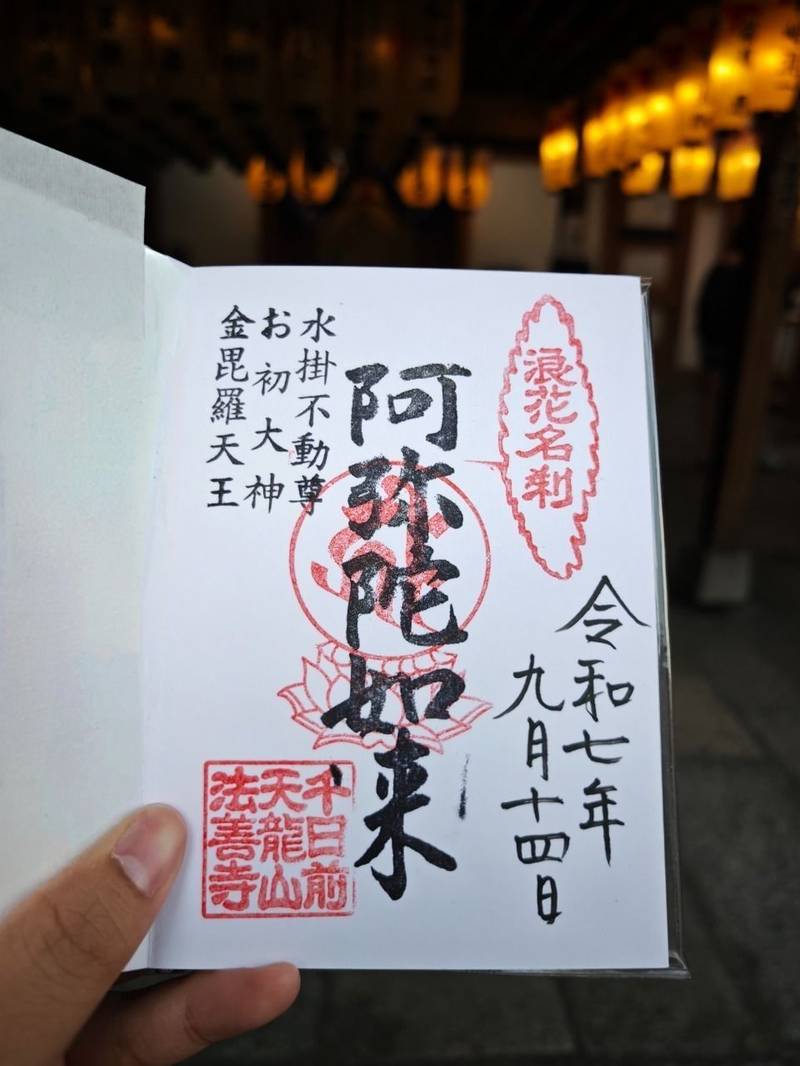 浪花名刹
令和七年
九月十四日
阿弥陀如来
水掛不動尊
お初大神
金毘羅天王
千日前
天龍山
法善寺